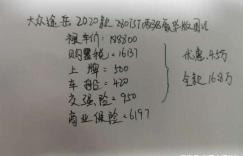 大众途岳 2020款 280TSI 两驱豪华版国VI
裸车价: 188800
购置税 = 16137
上牌 = 500
车船 = 420
交强险 = 950
商业保险 = 6197
优惠 4.5万
全款 16.8万